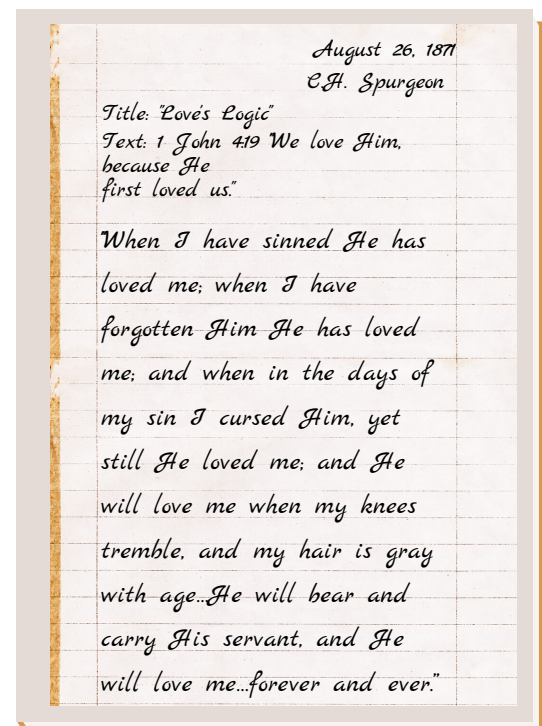 August 26, 1871
C.H. Spurgeon
Title: "Love's Logic"
Text: 1 John 4:19 We love Him,
because He
first loved us."
When I have sinned He has
loved me; when I have
forgotten Him He has loved
me; and when in the days of
my sin I cursed Him, yet
still He loved me; and He
will love me when my knees
tremble, and my hair is gray
with age...He will bear and
carry His servant, and He
will love me...forever and ever."